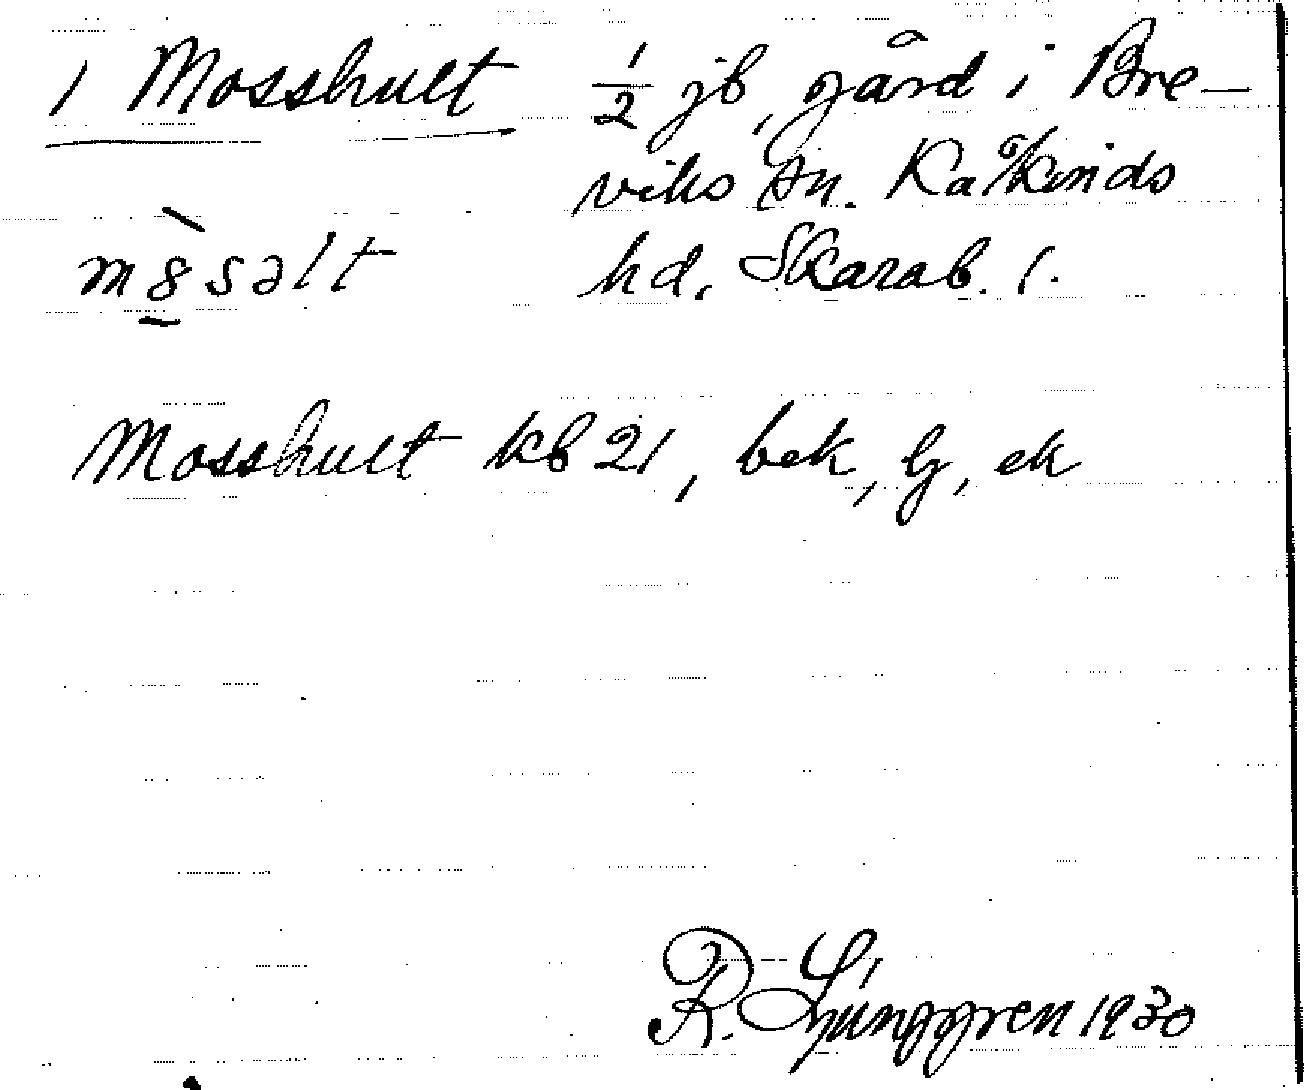 1 Mosshult ½ jb, gård i Bre-
viks sn. Kåkinds
hd, Skarab. l.
Mosshult kb 21, bek, lj, ek
R. Ljunggren 1930